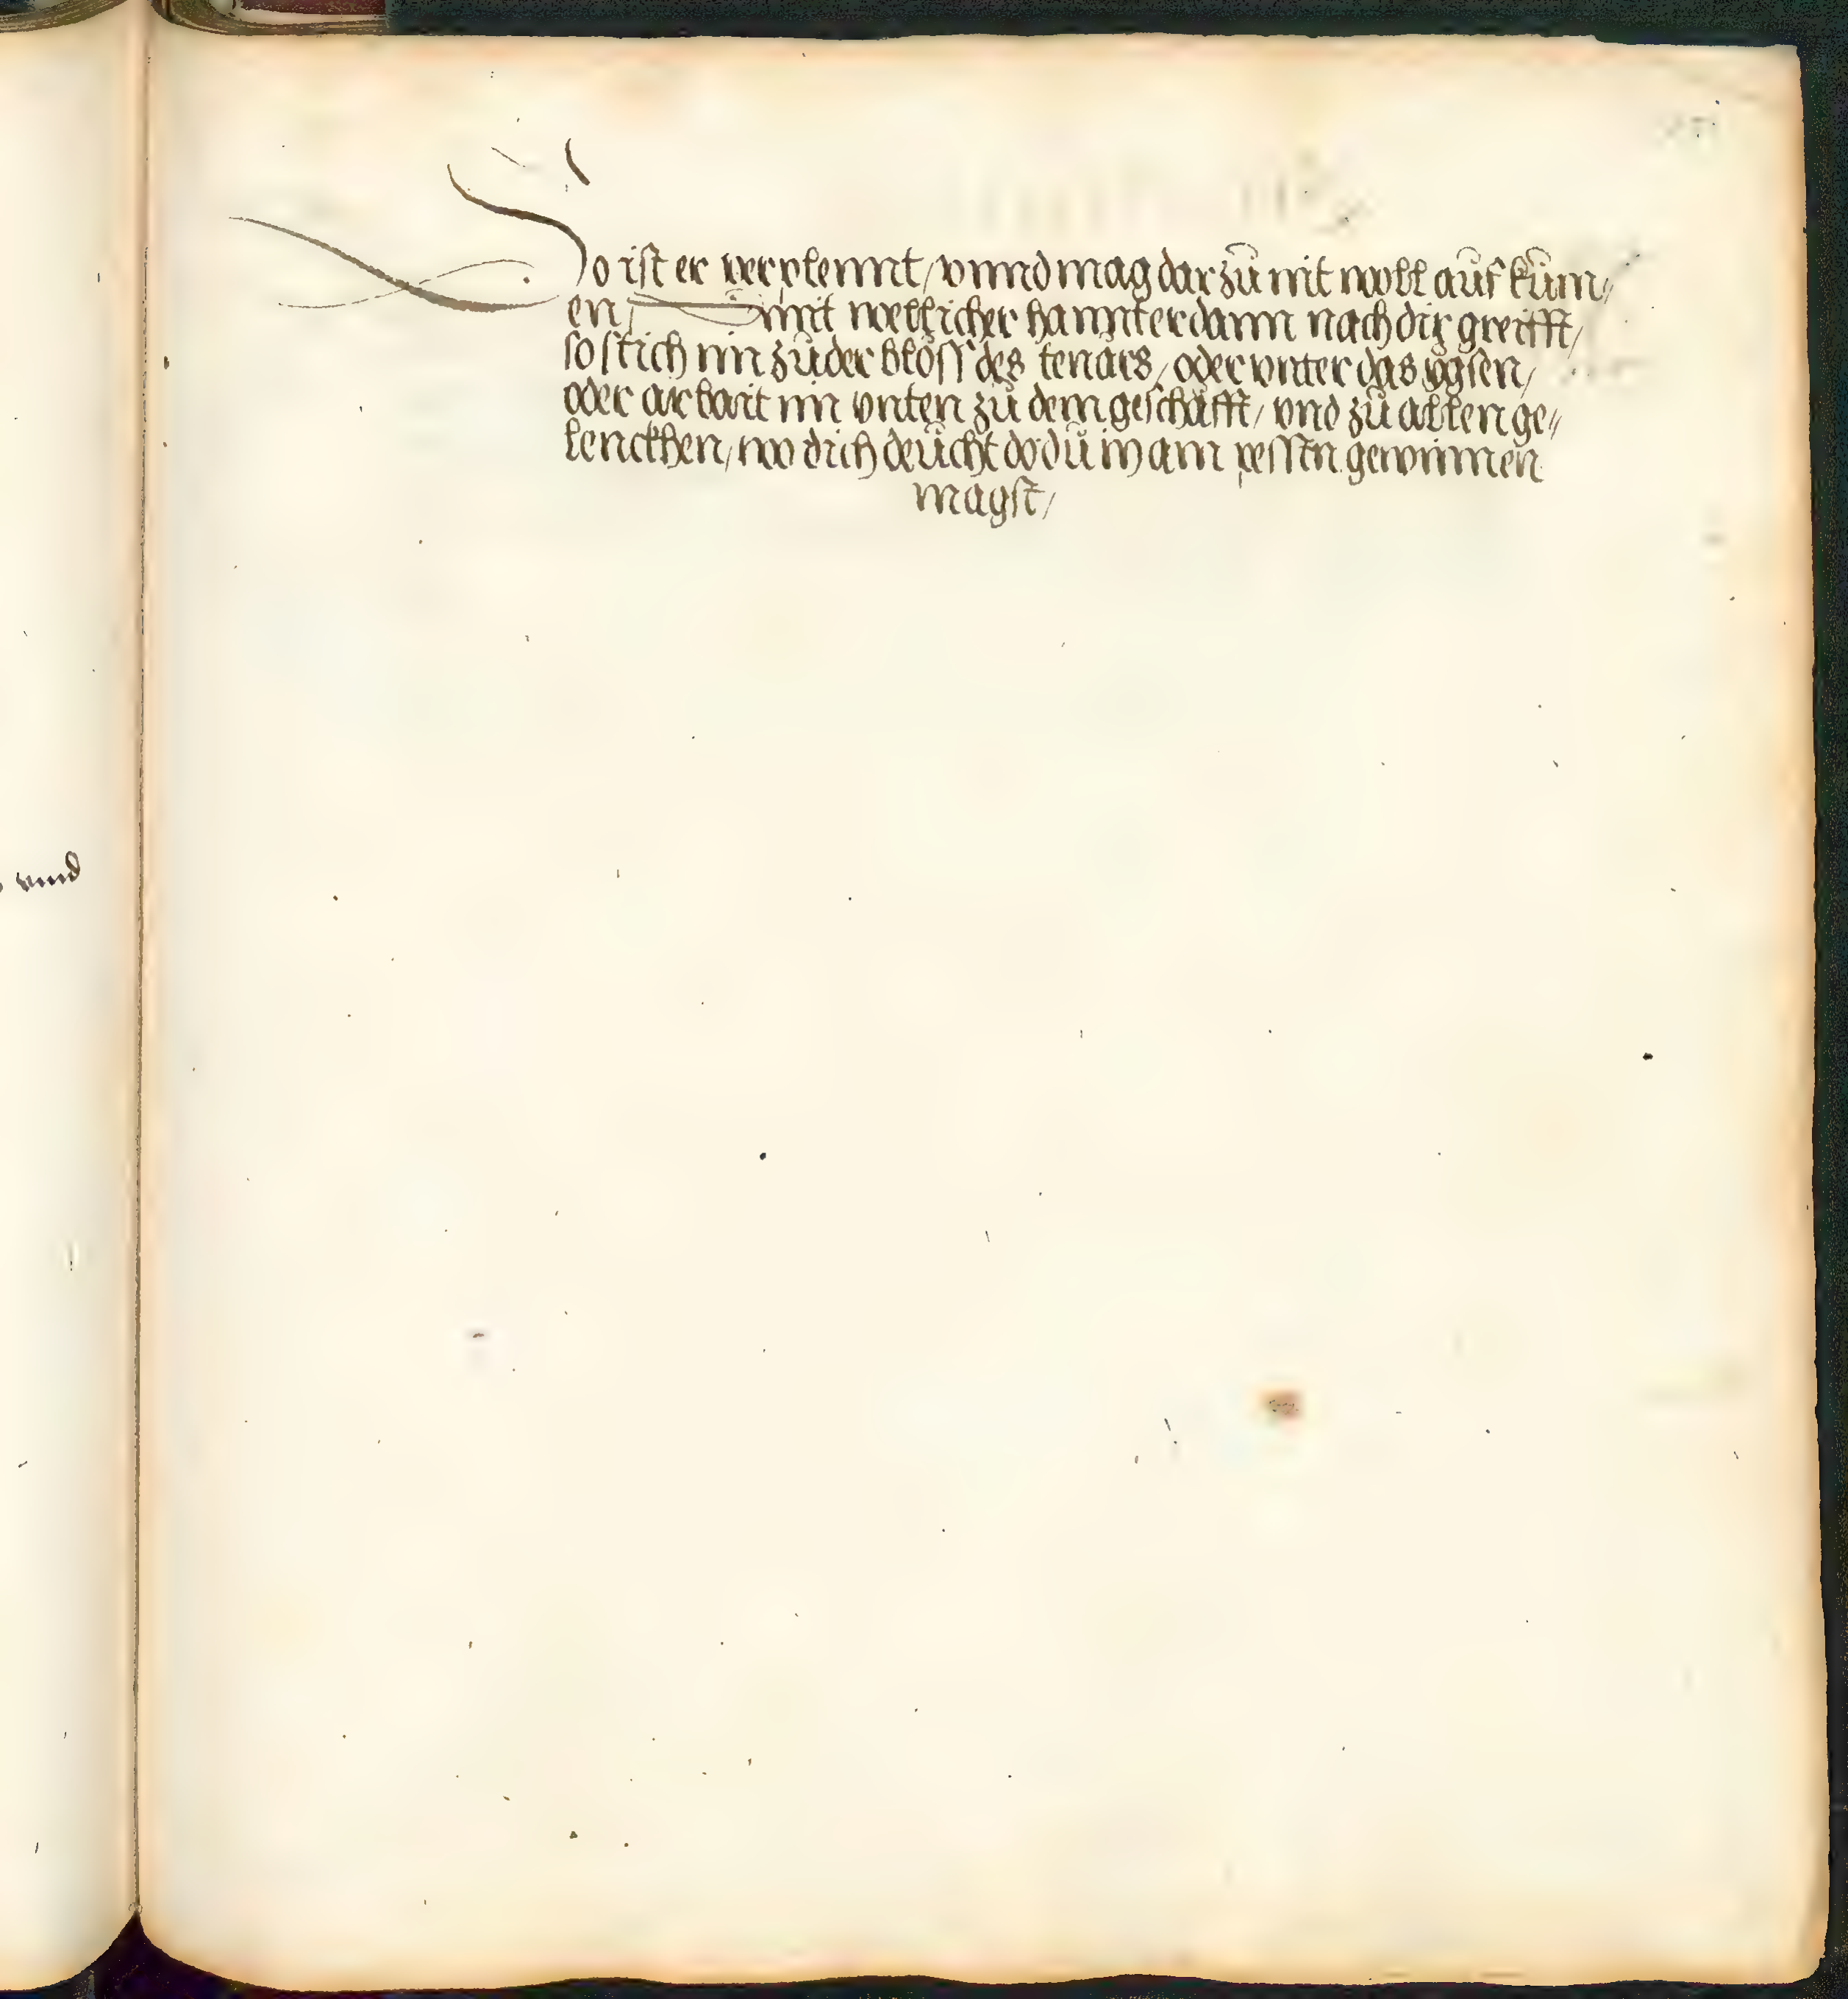 vnnd
So ist er verplennt / vnnd mag dar zů nit woll aůf kům„
en / mit wellicher hannt er dann nach dir greifft /
so stich im zů der blöss des tenärs / oder vnter das ÿgsen /
oder arbait im vnten zů dem geschäfft / vnd zů allen ge„
lenckhen / wo dich deücht do dů in am pessten gewinnen
magst /